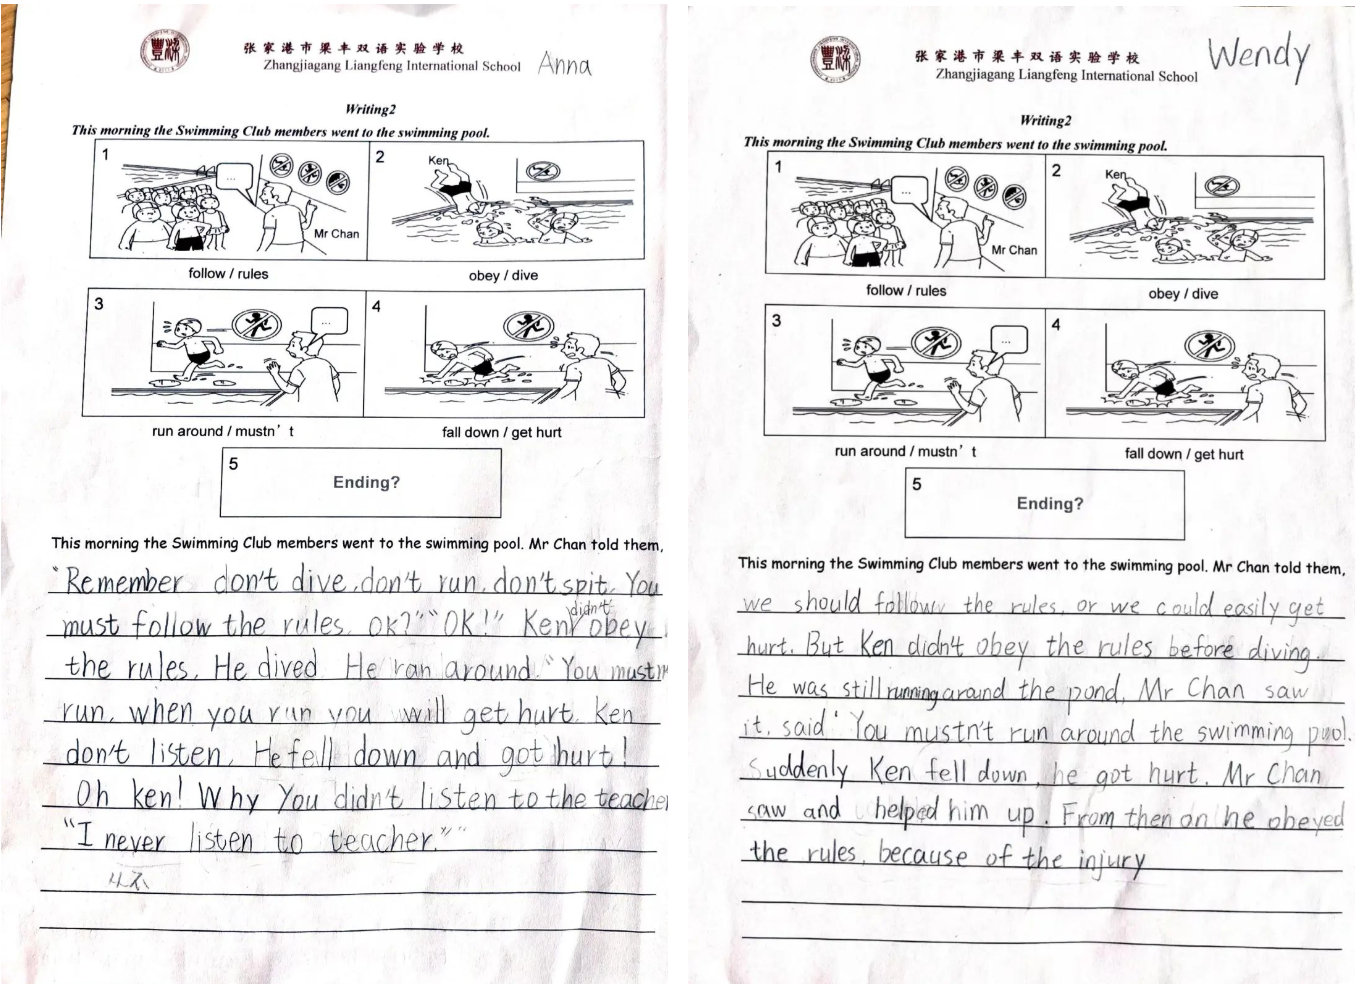 張家港市梁丰双语实验学校
Zhangjiagang Liangfeng International School
Anna
Writing2
This morning the Swimming Club members went to the swimming pool.
1
...
Mr Chan
2
Ken
follow / rules
obey / dive
3
...
4
run around / mustn't
fall down / get hurt
5
Ending?
This morning the Swimming Club members went to the swimming pool. Mr Chan told them,
"Remember don't dive, don't run, don't spit. You
must follow the rules. OK?" "OK!" Ken didn't obey
the rules. He dived He ran around. "You mustn
run, when you run you will get hurt. Ken
don't listen. He fell down and got hurt!
Oh ken! Why You didn't listen to the teache
"I never listen to teacher."
张家港市梁丰双语实验学校
Zhangjiagang Liangfeng International School
Wendy
Writing2
This morning the Swimming Club members went to the swimming pool.
1
...
Mr Chan
2
Ken
follow / rules
obey / dive
3
...
4
run around / mustn't
fall down / get hurt
5
Ending?
This morning the Swimming Club members went to the swimming pool. Mr Chan told them,
we should follow the rules, or we could easily get
hurt. But Ken didn't obey the rules before diving.
He was still running around the pond, Mr Chan saw
it, said "You mustn't run around the swimming pool.
Suddenly Ken fell down, he got hurt. Mr Chan
saw and helped him up. From then on he obeyed
the rules, because of the injury